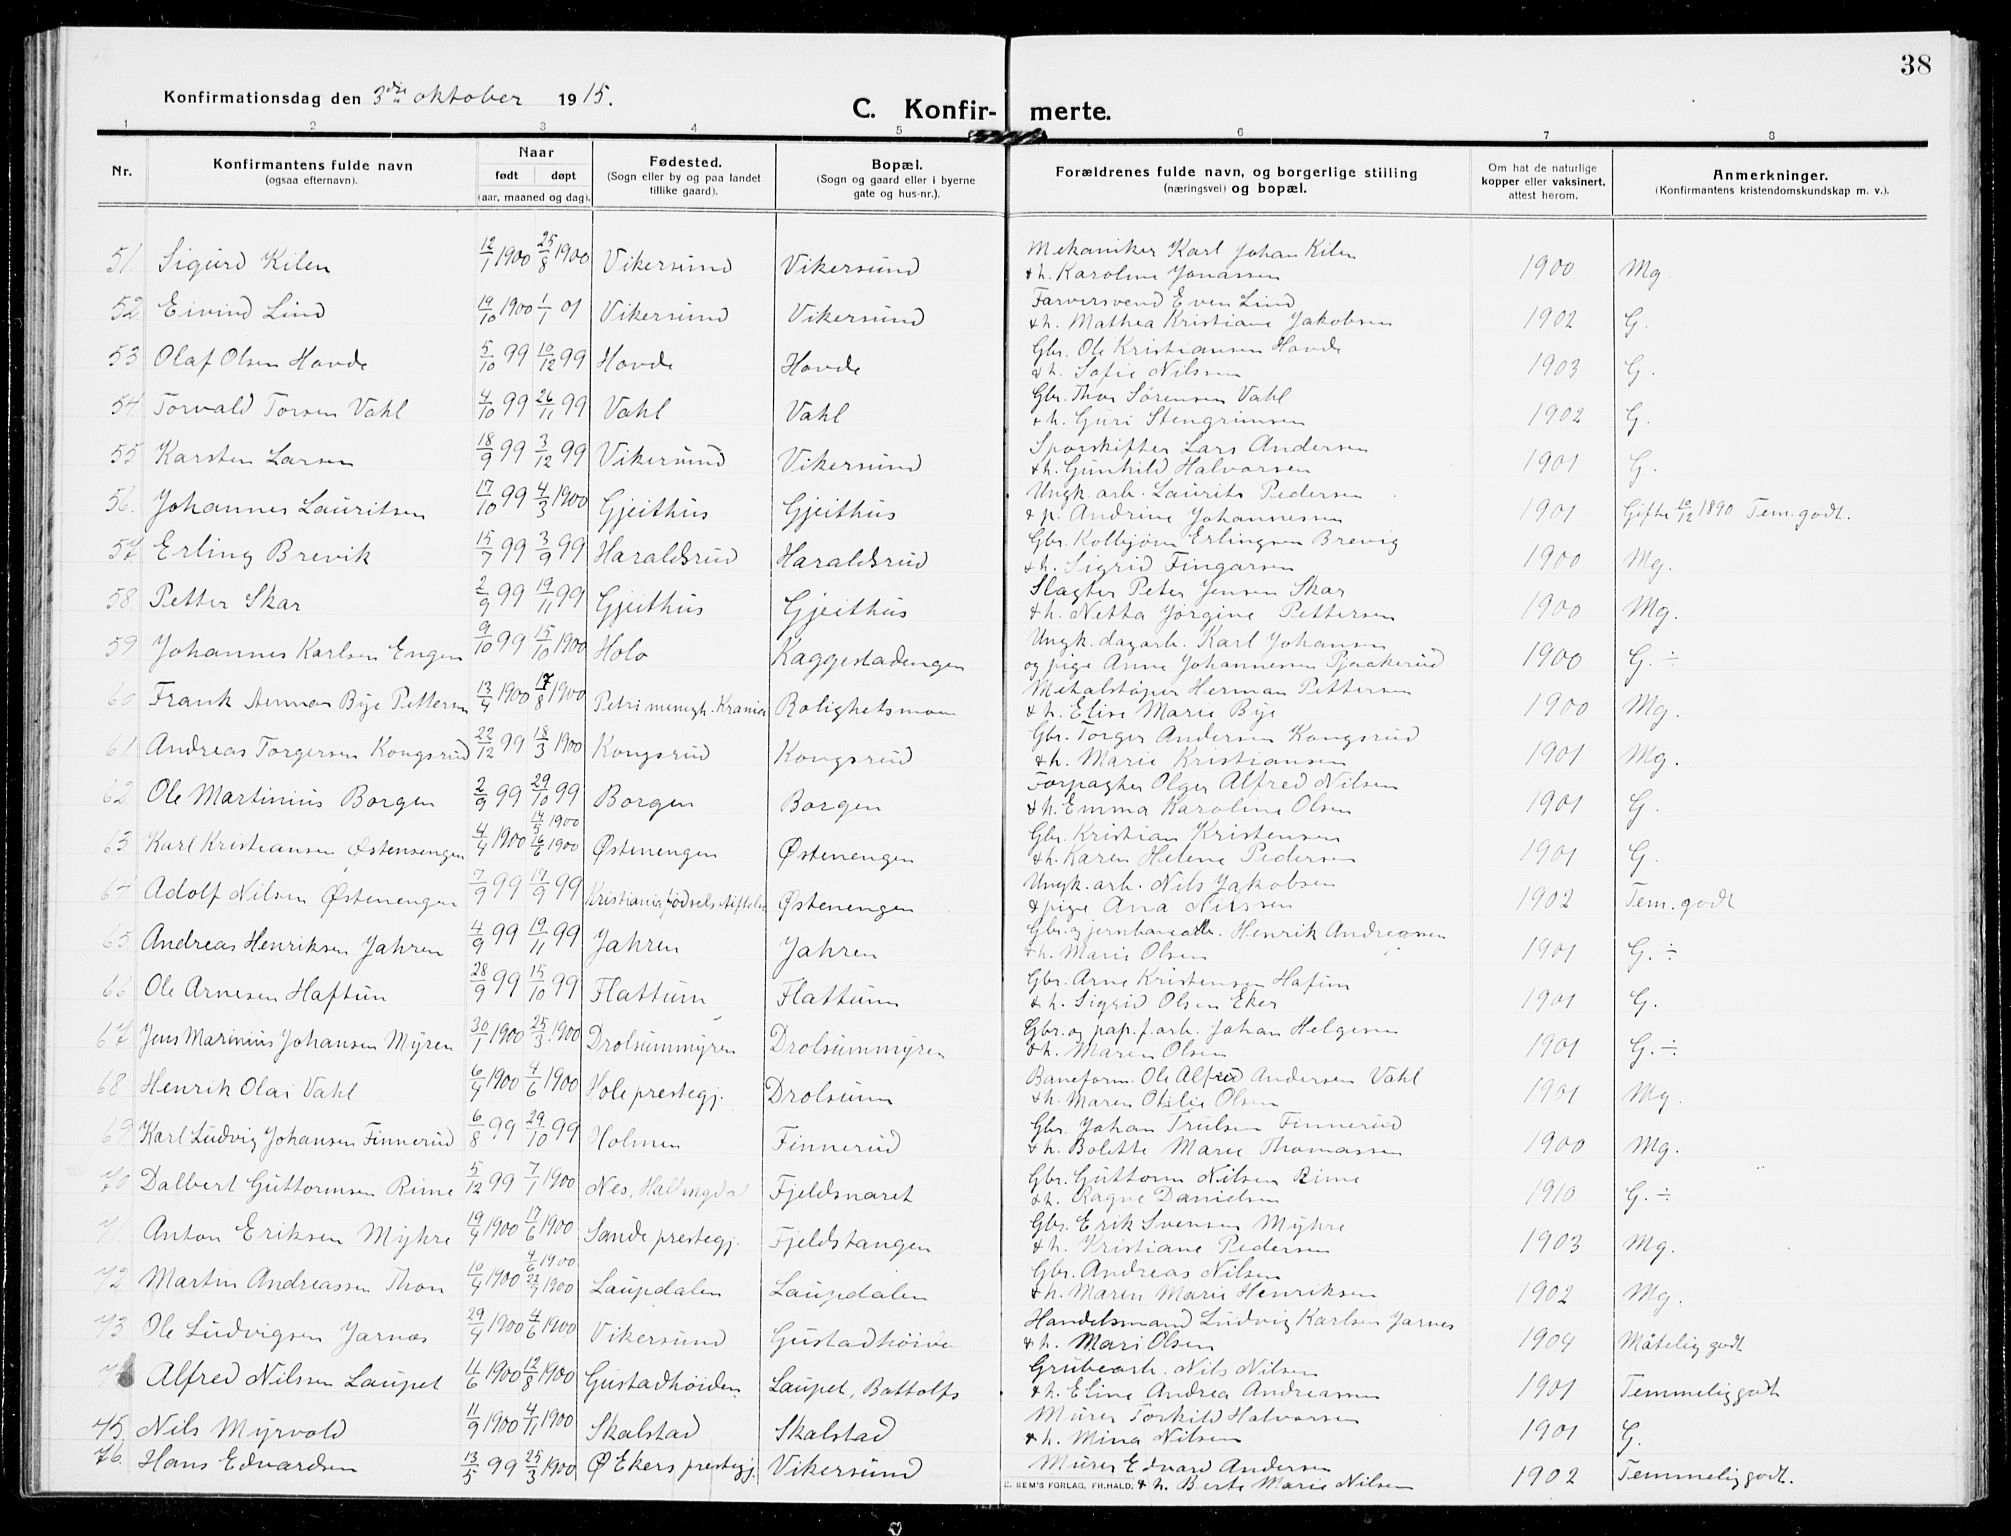 38
Konfirmationsdag den 3die oktober 1915.
C. Konfir- merte.
1 2 3 4 5 6 7 8
Nr. Konfirmantens fulde navn (ogsaa efternavn). Naar født døpt (aar, maaned og dag). Fødested. (Sogn eller by og paa landet tillike gaard). Bopæl. (Sogn og gaard eller i byerne gate og hus-nr.). Forældrenes fulde navn, og borgerlige stilling (næringsvei) og bopæl. Om hat de naturlige kopper eller vaksinert, attest herom. Anmerkninger. (Konfirmantens kristendomskundskap m. v.).
51. Sigurd Kilen 12/1 1900 25/8 1900 Vikersund Vikersund Mekaniker Karl Johan Kilen
& h. Karoline Jonassen 1900 Mg.
52 Eivind Lind 19/10 1900 1/1 01 Vikersund Vikersund Farversvend Even Lind
& h. Mathea Kristiane Jakobsen 1902 G.
53 Olaf Olsen Hovde 5/10 99 10/12 99 Hovde Hovde Gbr. Ole Kristiansen Hovde
& h. Sofie Nilssen 1903 G.
54 Torvald Torsen Vahl 4/10 99 26/11 99 Vahl Vahl Gbr. Thor Sørensen Vahl
& h. Guri Stengrimsen 1902 G.
55 Karsten Larsen 18/9 99 3/12 99 Vikersund Vikersund Sporskifter Lars Andersen
& h. Gunhild Halvorsen 1901 G.
56. Johannes Lauritsen 17/10 99 4/3 1900 Gjeithus Gjeithus Ungk. arb. Laurits Pedersen
& p. Andrine Johannessen 1901 Gifte 10/12 1890 Tem. godt.
57. Erling Brevik 15/7 99 3/9 99 Haraldsrud Haraldsrud Gbr. Kolbjørn Erlingsen Brevig
& h. Sigrid Fingarsen 1900 Mg.
58 Petter Skar 2/9 99 19/11 99 Gjeithus Gjeithus Slagter Peter Jensen Skar
& h. Netta Jørgine Pettersen 1900 Mg.
59 Johannes Karlsen Engen 9/10 99 15/10 1900 Holo Kaggestadengen Ungk. dagarb. Karl Johansen
og pige Anne Johannessen Pjaakerud 1900 G. ÷
60 Frank Bye Pettersen 13/4 1900 17/8 1900 Petri menigh. Krania Rolighetsmoen Metalstøper Herman Pettersen
& h. Elise Marie Bye 1900 Mg.
61 Andreas Torgersen Kongsrud 22/12 99 18/3 1900 Kongsrud Kongsrud Gbr. Torger Andersen Kongsrud
& h. Marie Kristiansen 1901 Mg.
62 Ole Martinius Borgen 2/9 99 29/10 99 Borgen Borgen Forpagter Olger Alfred Nilsen
& h. Emma Karoline Olsen 1901 G.
63 Karl Kristiansen Østensengen 4/4 1900 14/5 1900 16/6 1900 Østenengen Østenengen Gbr. Kristian Kristensen
& h. Karen Helene Pedersen 1901 G.
64 Adolf Nilsen Østenengen 7/9 99 17/9 99 Kristiania fødselsstiftelse Østenengen Ungk. arb. Nils Jakobsen
& pige Ana Nilssen 1902 Tem. godt
65 Andreas Henriksen Jahren 4/9 99 19/11 99 Jahren Jahren Gbr. og jernbanearb. Henrik Andreassen
& h. Marie Olsen 1901 G. ÷
66 Ole Arnesen Haftun 28/9 99 15/10 99 Flattum Flattum Gbr. Arne Kristensen Haftun
& h. Sigrid Olsen Eker 1901 G.
67 Jens Marinius Johansen Myren 30/1 1900 25/3 1900 Drolsummyren Drolsummyren Gbr. og pap. f. arb. Johan Helgesen
& h. Maren Olsen 1901 G. ÷
68 Henrik Olai Vahl 6/4 1900 4/6 1900 Hole prestegj. Drolsum Baneform. Ole Alfred Andersen Vahl
& h. Maren Otilie Olsen 1901 Mg.
69 Karl Ludvig Johansen Finnerud 6/8 99 29/10 99 Holmen Finnerud Gbr. Johan Trulsen Finnerud
& h. Bolette Marie Thomassen 1900 Mg.
70 Dalbert Guttormsen Rime 5/12 99 7/1 1900 Nes, Hallingdal Fjeldsnaret Gbr. Guttorm Nilsen Rime
& h. Ragne Danielsen 1910 G. ÷
71 Anton Eriksen Myhre 19/4 1900 17/6 1900 Sande prestegj. Fjeldstangen Gbr. Erik Svensen Myhre
& h. Kristiane Pedersen 1903 Mg.
72 Martin Andreassen Thon 10/4 1900 4/6 1900 22/7 1900 Laupdalen Laupdalen Gbr. Andreas Nilsen
& h. Maren Marie Henriksen 1902 Mg.
73 Ole Ludvigsen Jarnæs 29/4 1900 4/6 1900 Vikersund Gustadhøiden Handelsmand Ludvig Karlsen Jarnes
& h. Mari Olsen 1904 Måtelig godt
74 Alfred Nilssen Laupet 11/6 1900 12/8 1900 Gustadhøiden Laupet, Bottolfs Grubearb. Nils Nilsen
& h. Eline Andrea Andreassen 1901 Temmelig godt
75 Nils Myrvold 11/9 1900 4/11 1900 Skalstad Skalstad Murer Torkild Halvorsen
& h. Mina Nilsen 1901 G.
76. Hans Edvardsen 13/5 99 25/3 1900 Ø. Ekers prestegj. Vikersund Murer Edvard Andersen
& h. Berte Marie Nilsen 1902 Temmelig godt.
E. SEM'S FORLAG. FR.HALD.